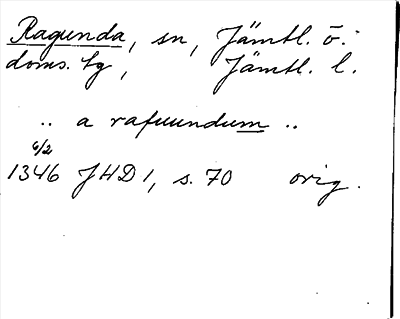 Ragunda, sn, Jämtl. ö.
doms. hg, Jämtl. l.
.. a rafuundum ..
6/2
1346 JHD 1, s. 70 orig.